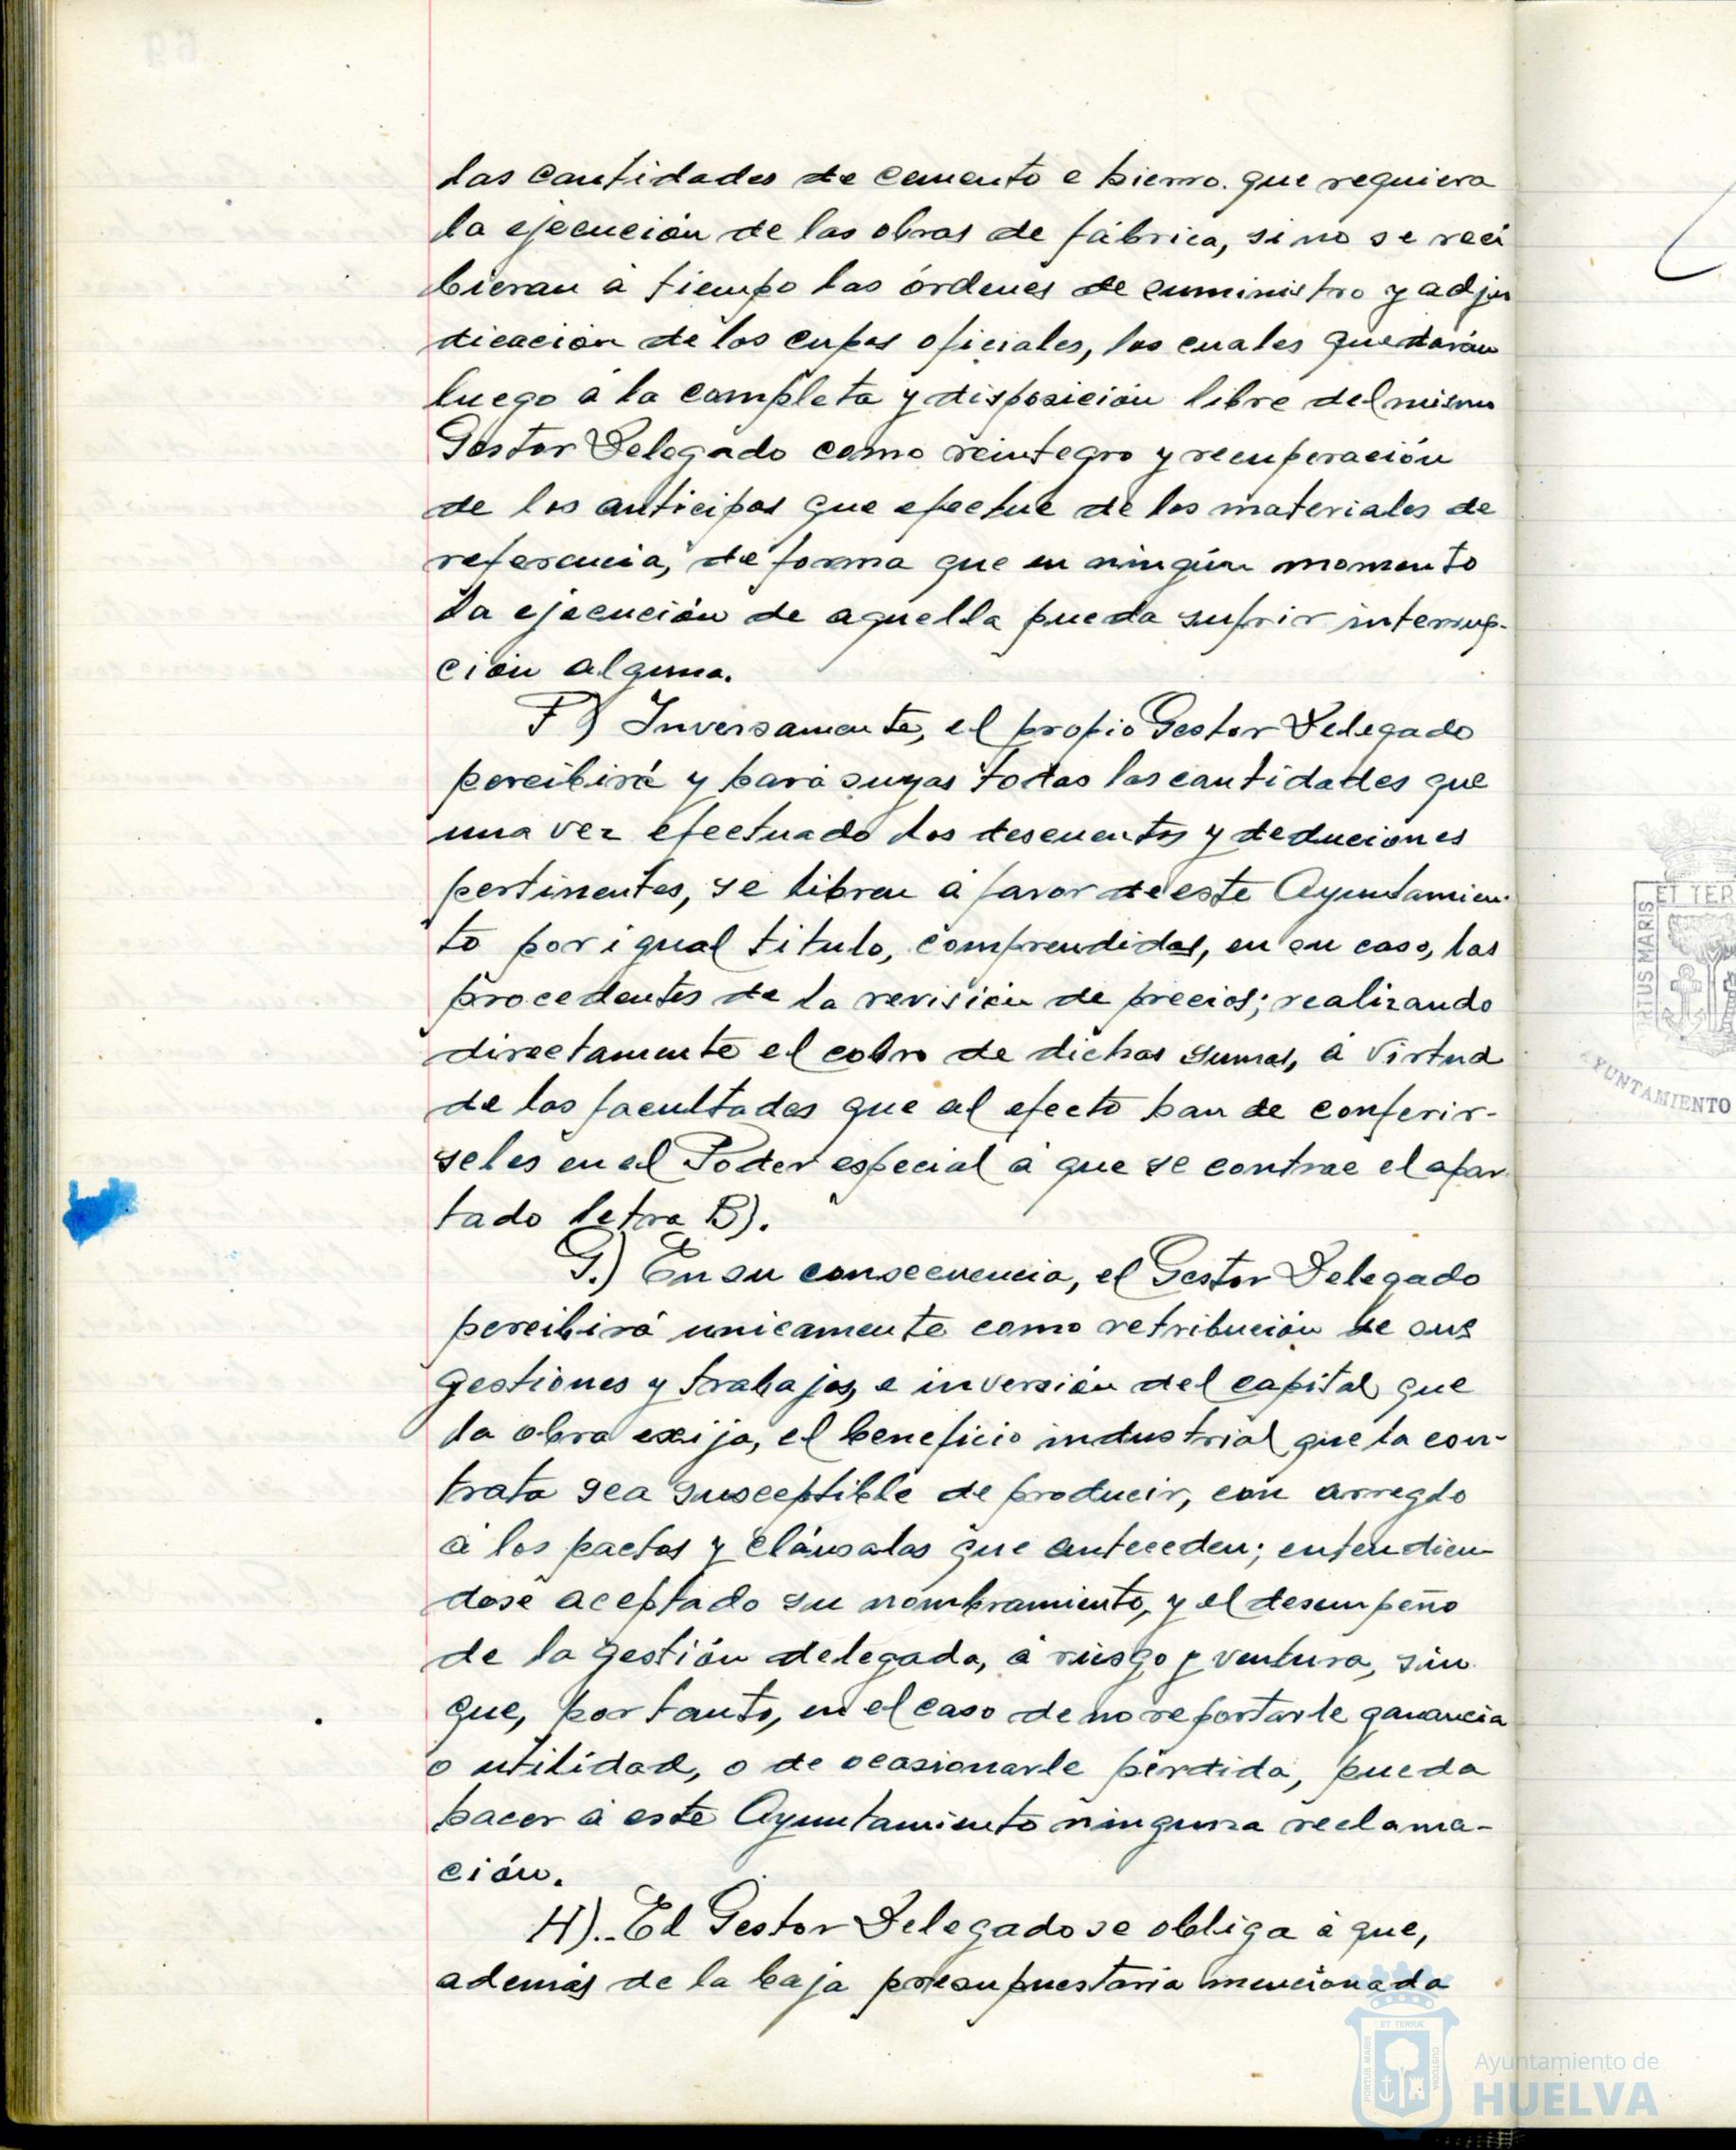 las cantidades de cemento e hierro. que requiera
la ejecución de las obras de fábrica, si no se reci
bieran a tiempo las órdenes de suministro y adju
dicación de los cupos oficiales, los cuales quedarán
luego a la completa y disposición libre del mismo
Gestor Delegado como reintegro y recuperación
de los anticipos que efectue de los materiales de
referencia, de forma que en ningún momento
la ejecución de aquella pueda sufrir interrup-
ción alguna.
F) Inversamente, el propio Gestor Delegado
percibirá y hará suyas todas las cantidades que
una vez efectuado los descuentos y deduciones
pertinentes, se libren á favor de este Ayuntamien-
to por igual titulo, comprendidas, en su caso, las
procedentes de la revisión de precios; realizando
directamente el cobro de dichas sumas, á virtud
de las facultades que al efecto han de conferir-
seles en el Poder especial á que se contrae el apar
tado letra B).
G.) En su consecuencia, el Gestor Delegado
percibirá unicamente como retribución de sus
gestiones y trabajos, e inversión del capital que
la obra exija, el beneficio industrial que la con-
trata sea susceptible de producir, con arreglo
á los pactos y cláusulas que anteceden; entendien
dose aceptado su nombramiento, y el desempeño
de la gestión delegada, á riesgo y ventura, sin
que, por tanto, en el caso de no reportarle ganancia
o utilidad, o de ocasionarle pérdida, pueda
hacer á este Ayuntamiento ninguna reclama-
ción.
H).- El Gestor Delegado se obliga á que,
además de la baja presupuestaria mencionada
ET TER
RTUS MARIS
AYUNTAMIENTO
PORTUS MARIS
ET TERRÆ
CUSTODIA
Ayuntamiento de
HUELVA